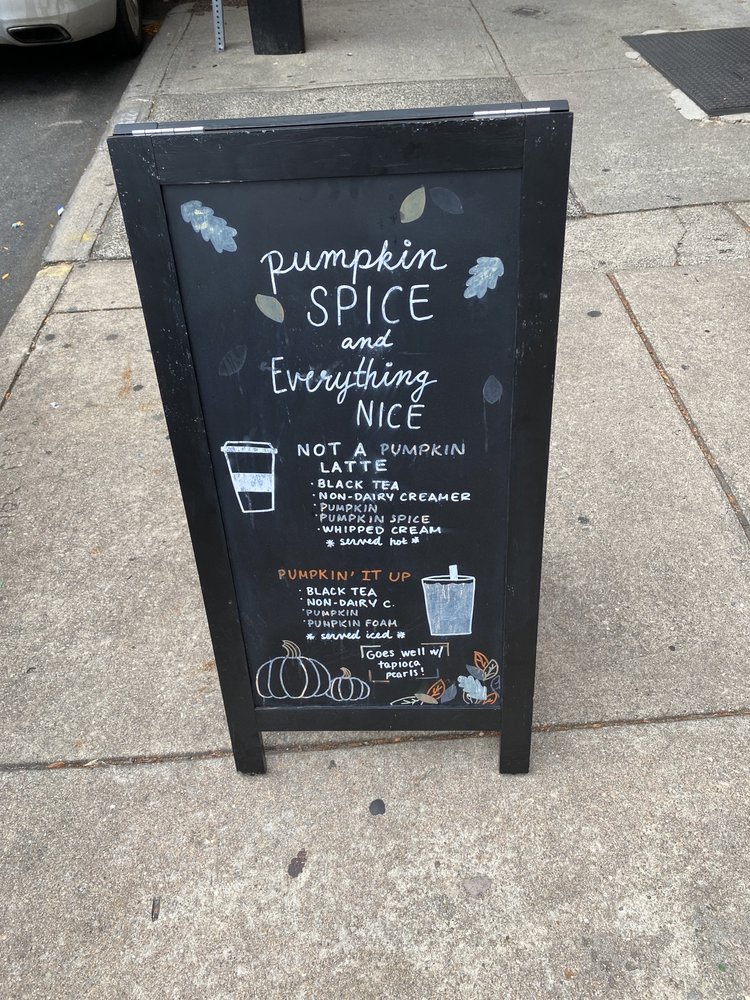 pumpkin
SPICE
and
Everything
NICE
NOT A PUMPKIN
LATTE
· BLACK TEA
· NON-DAIRY CREAMER
· PUMPKIN
· PUMPKIN SPICE
· WHIPPED CREAM
* served hot *
PUMPKIN' IT UP
· BLACK TEA
· NON-DAIRY C.
· PUMPKIN
· PUMPKIN FOAM
* served iced *
Goes well w/
tapioca
pearls!